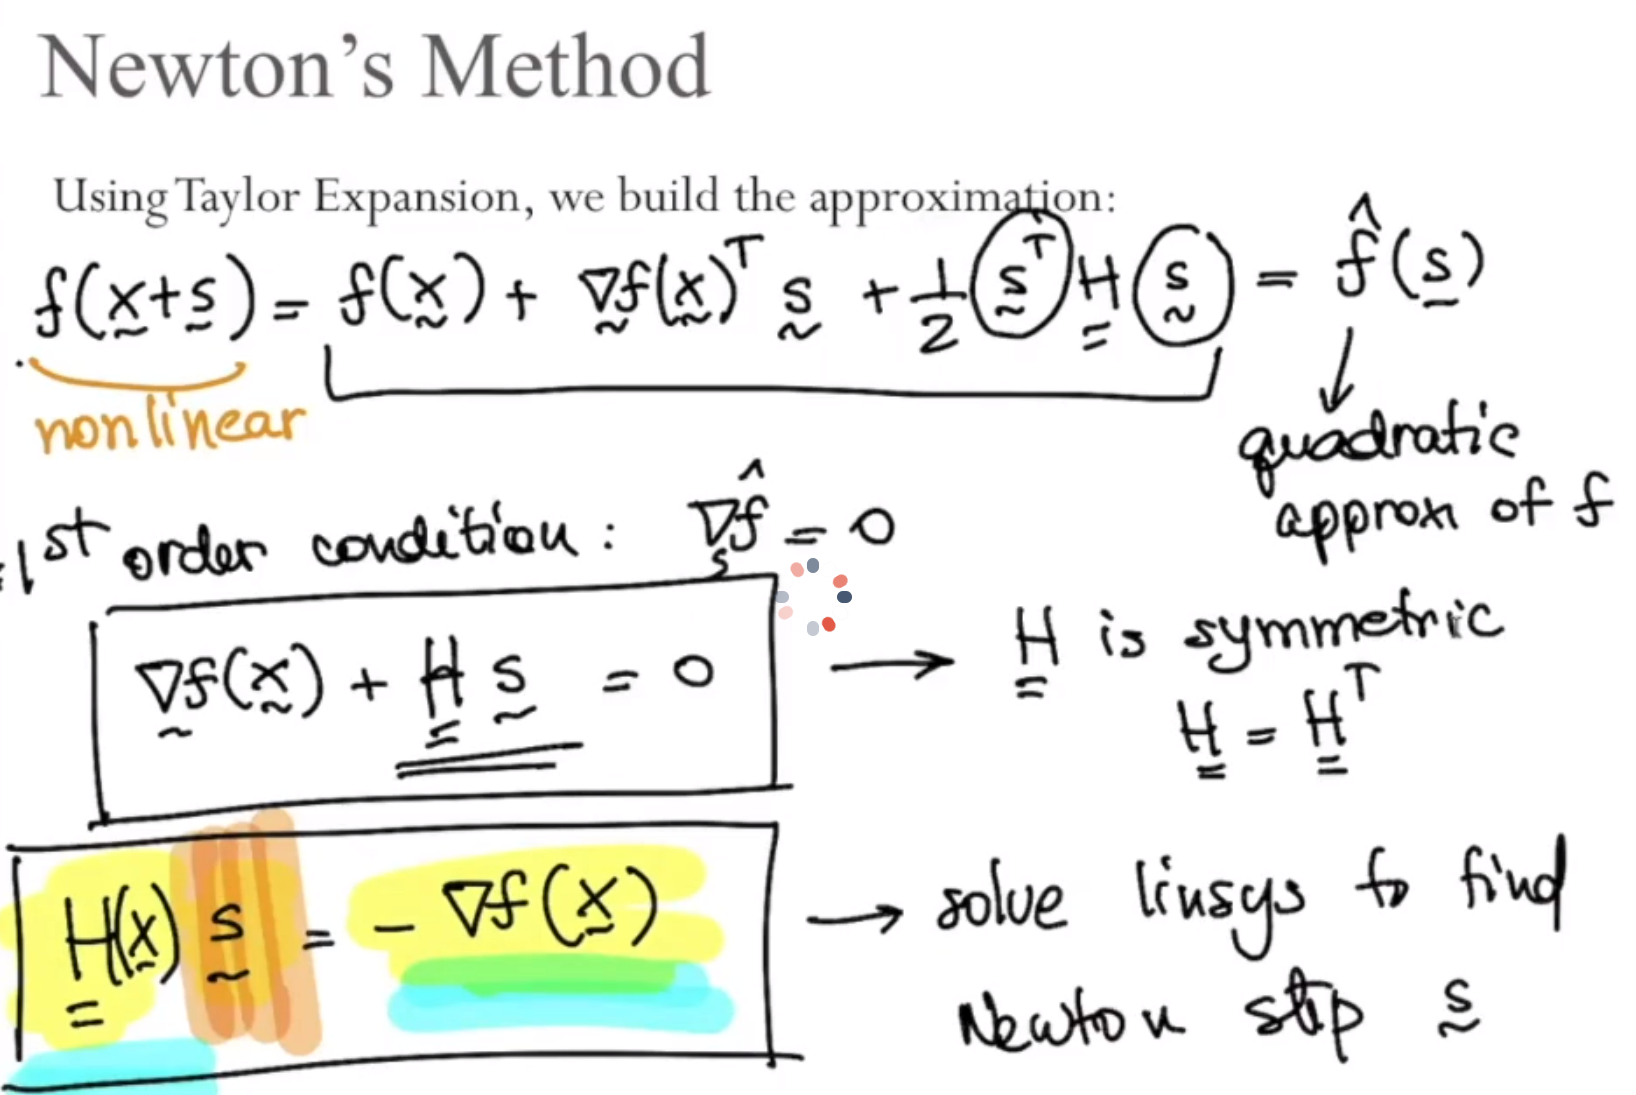 Newton's Method
Using Taylor Expansion, we build the approximation:
f(x+s) = f(x) + ∇f(x)ᵀ s + 1/2 sᵀ H s = f̂(s)
nonlinear
quadratic
approx of f
1st order condition: ∇ₛf̂ = 0
∇f(x) + H s = 0 → H is symmetric
H = Hᵀ
H(x) s = - ∇f(x) → solve linsys to find
Newton step s